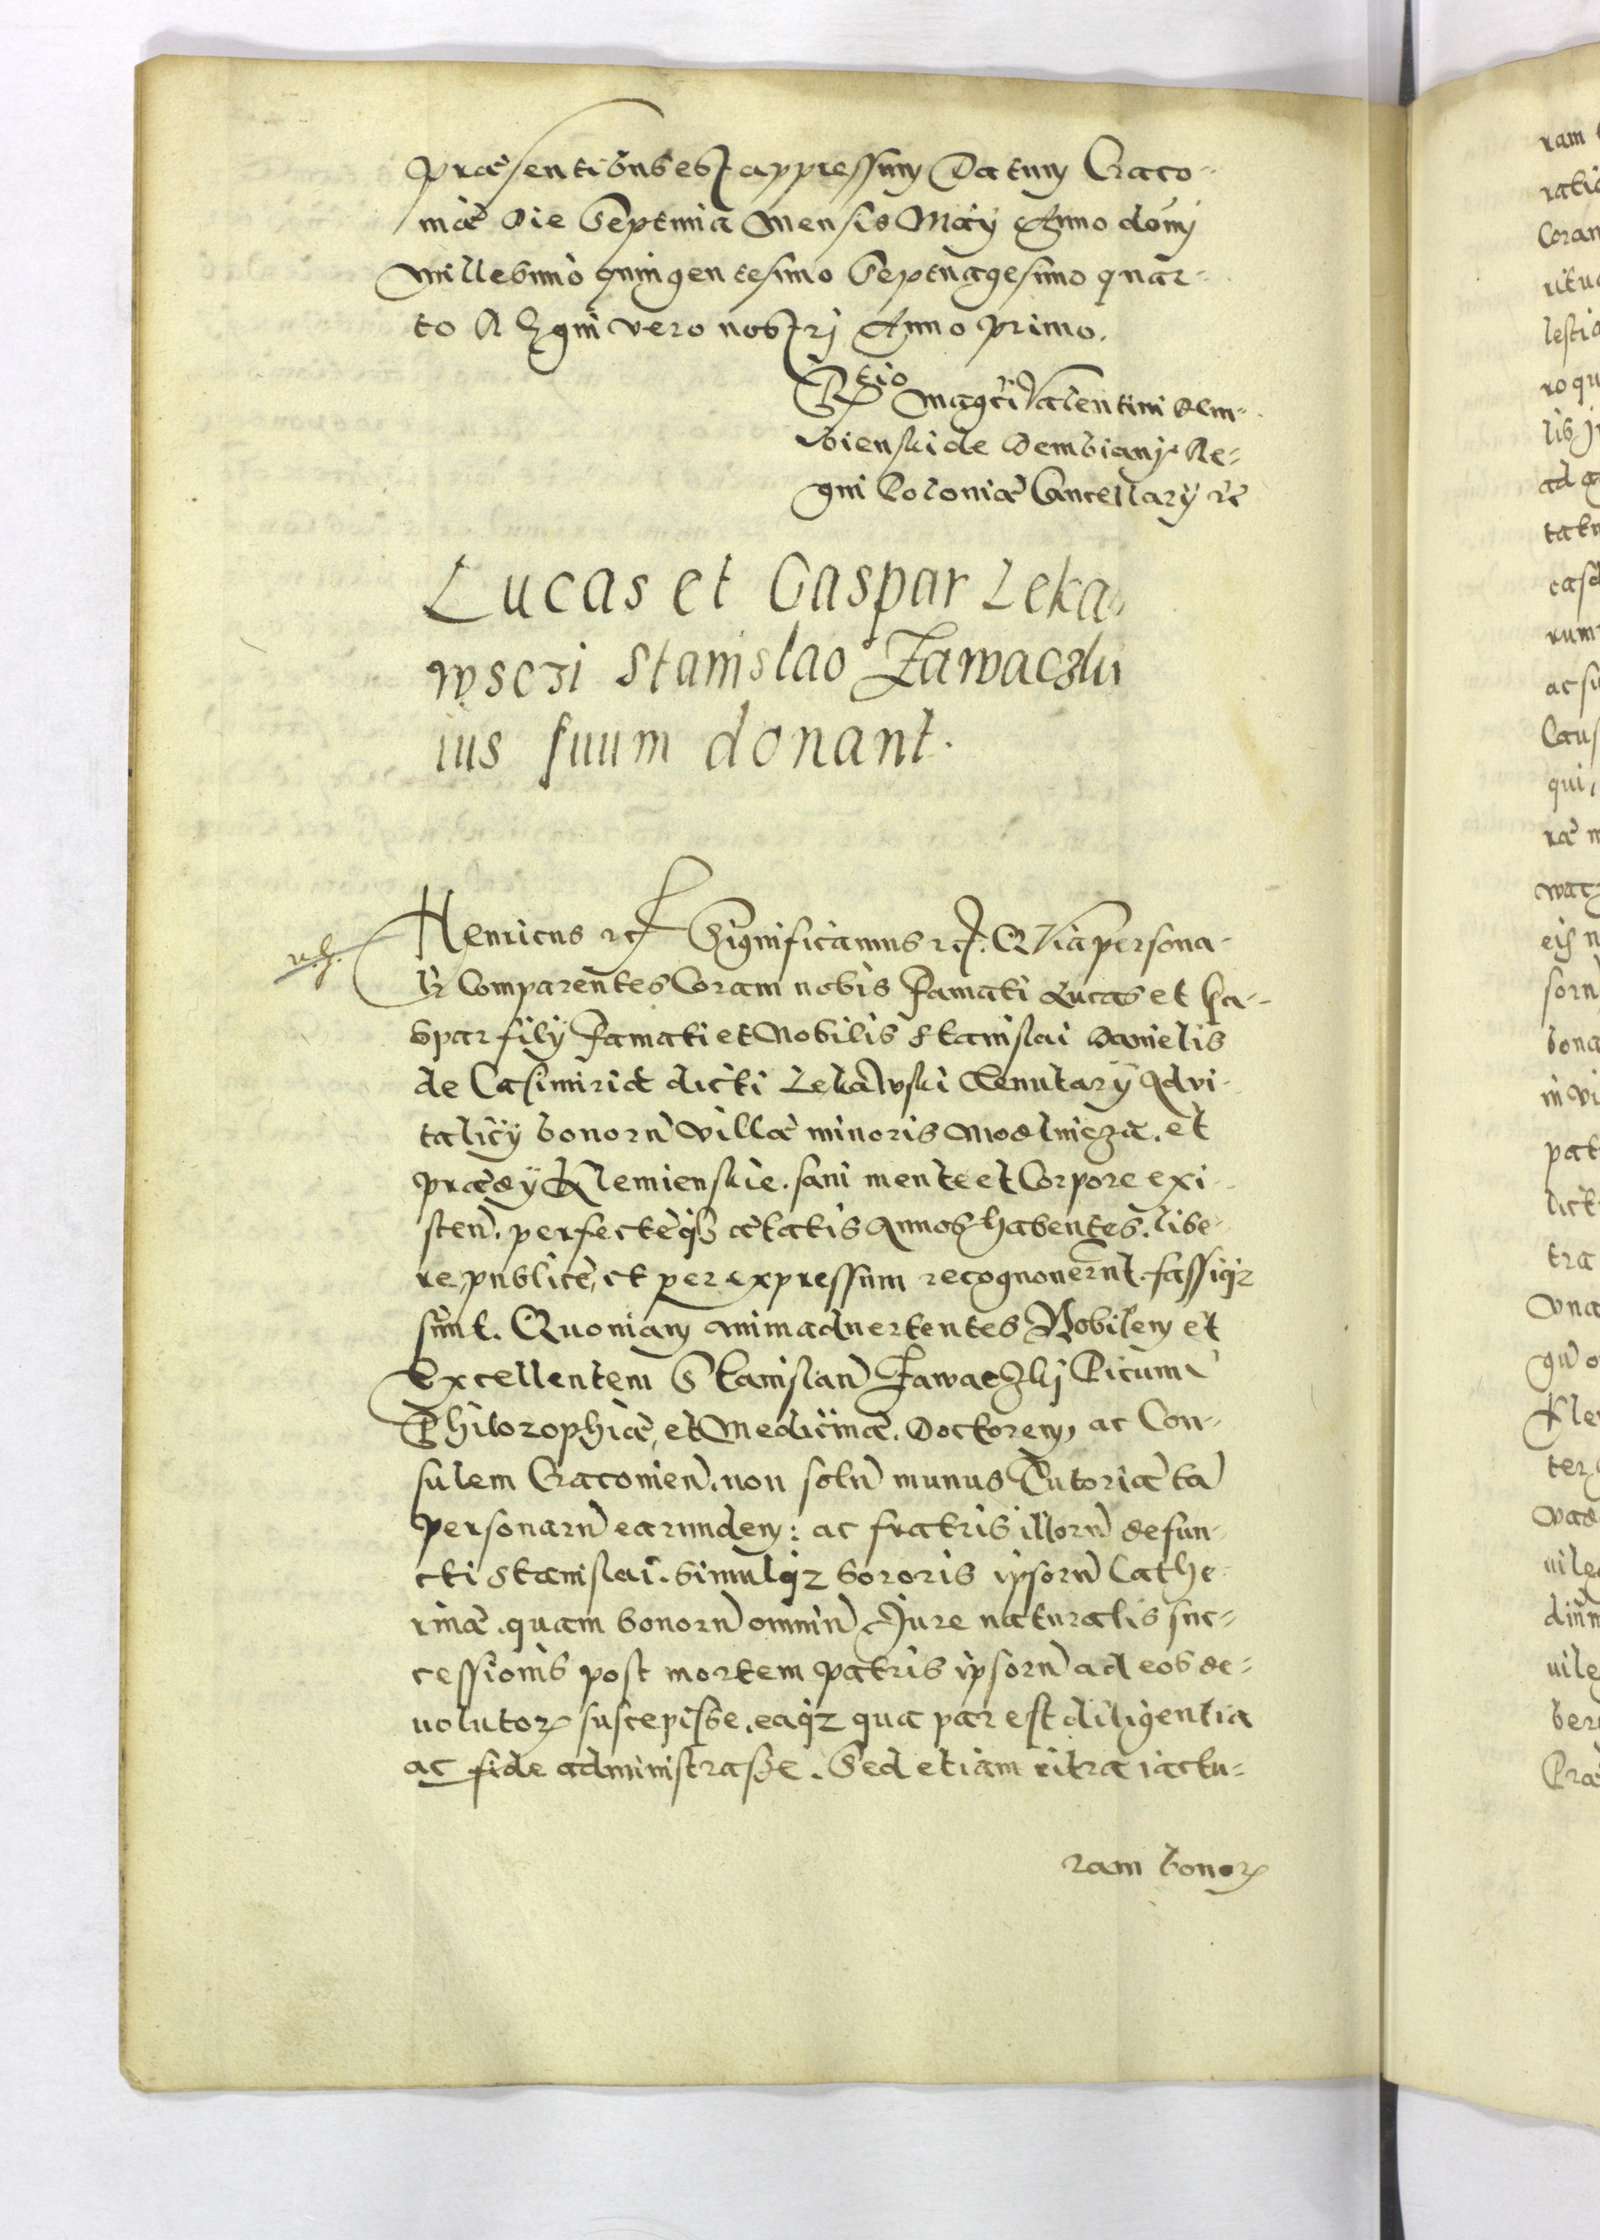 præsentibus est appressum Datum Craco-
uiæ Die Septima Mensis Maÿ Anno domj
Millesimo quingentesimo Septuagesimo quar-
to Regni vero nostrj Anno primo.
Rtio Magci Valentini Dem-
bienski de Dembianÿ Re-
gni Poloniæ Cancellarÿ etc
Lucas et Gaspar Leka-
wsczi Stanislao Zawaczki
ius suum donant.
Henricus etc Significamus etc. Quia persona-
lr Comparentes Coram nobis famati Lucas et Ga-
spar filÿ famati et Nobilis Stanislai Danielis
de Casimiria dicti Lekawski Tenutarÿ Advi-
talicÿ bonorũ villæ minoris Modlnicza. et
prædÿ Klemienskie. sani mente et Corpore exi-
sten. perfecteqꝫ ætatis Annos habentes. libe-
re, publice, et per expressum recognouerunt. fassiqꝫ
sunt. Quoniam animaduertentes Nobilem et
Excellentem Stanislaũ Zawaczkj Picum
Philozophiæ, et Medicinæ. Doctorem, ac Con-
sulem Cracouien. non solũ munus Tutoriæ tã
personarũ earundem: ac fratris illorũ defun-
cti Stanislai. simulqꝫ sororis ipsorũ Cathe-
rinæ. quam bonorũ omniũ Jure naturalis suc-
cessionis post mortem patris ipsorũ ad eos de-
uolutoꝝ suscepisse. eaqꝫ qua par est diligentia
ac fide administrasse. Sed etiam citra iactu-
ram bonoꝝ